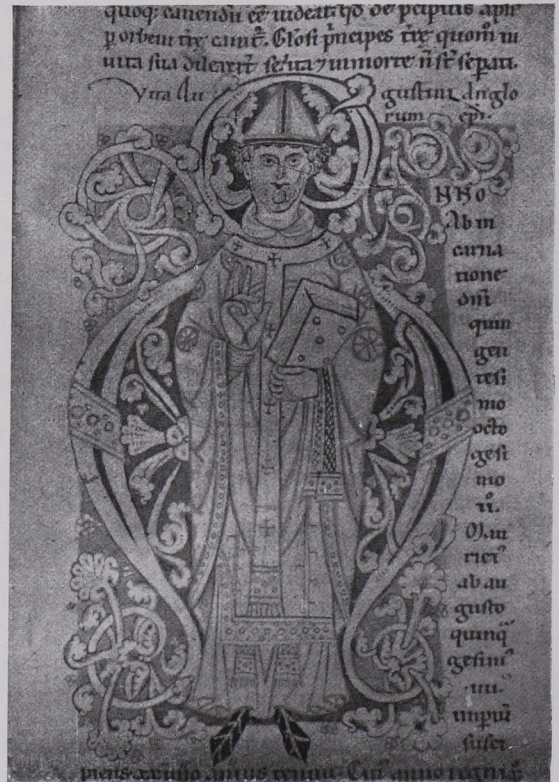 quoq; cauendū eē uideat. qd de p̄cipuis apl̄is
p orbem tr̄e canit. Gl̄osi p̄ncipes tr̄e quom̄ in
uita sua dilexer̄t se ita ⁊ in morte n̄ st̄ sepati.
Vita Au gustini Anglo
rum ep̄i.
NNO
Ab in
carna
tione
dn̄i
quin
gen
tesi
mo
octo
gesi
mo
Mau
rici
ab au
gusto
quinq̄
gesim
imp̄iū
susci
piens